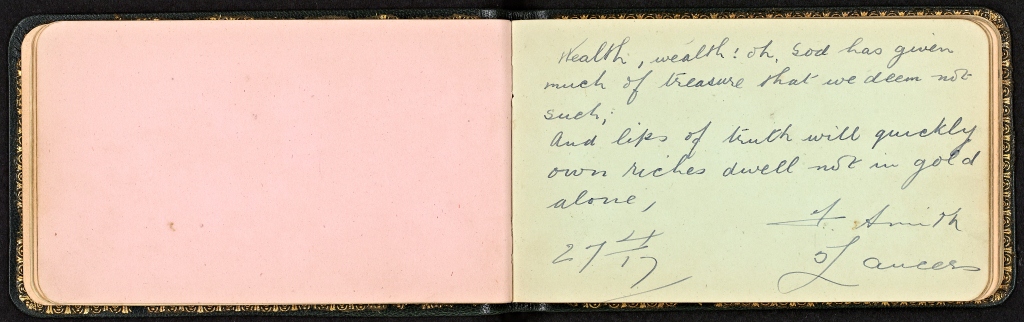 Wealth, wealth! oh, God has given
much of treasure that we deem not
such;
And lips of truth will quickly
own riches dwell not in gold
alone,
F. Smith
27 4/17
5 Lancers